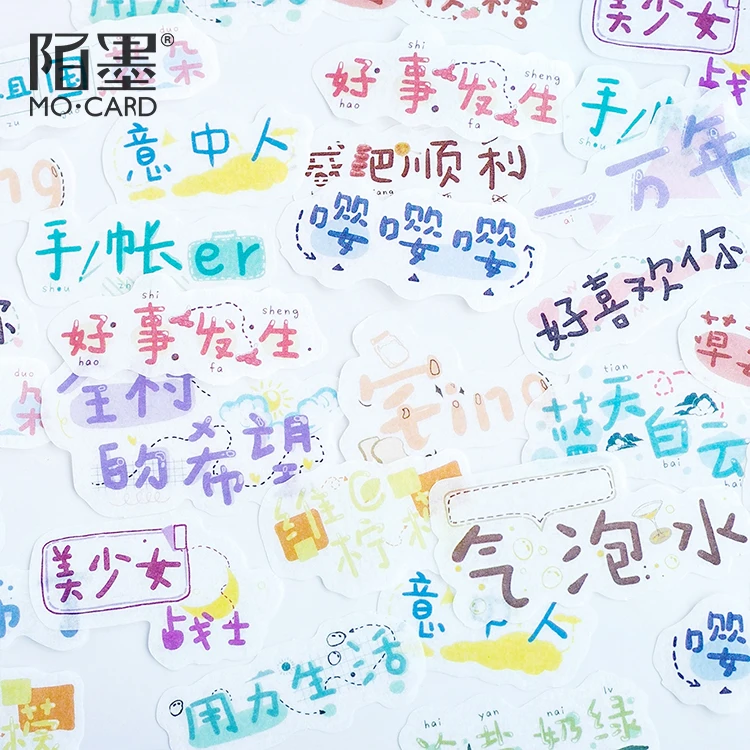 陌墨®
MO·CARD
美少女
战
duo
朵
zu
shi sheng
好事发生
hao fa
手/
shou
意中人
顺利
一万年
ai
手/帐er
shou
嘤嘤嘤
好喜欢你
shi sheng
好事发生
hao fa
duo
朵
全村
的希望
宅ing
tian
蓝天
白云
bai
草
维C
柠
气泡水
美少女
战士
意~人
嘤
用力生活
檬
hai yan nai lv
奶绿